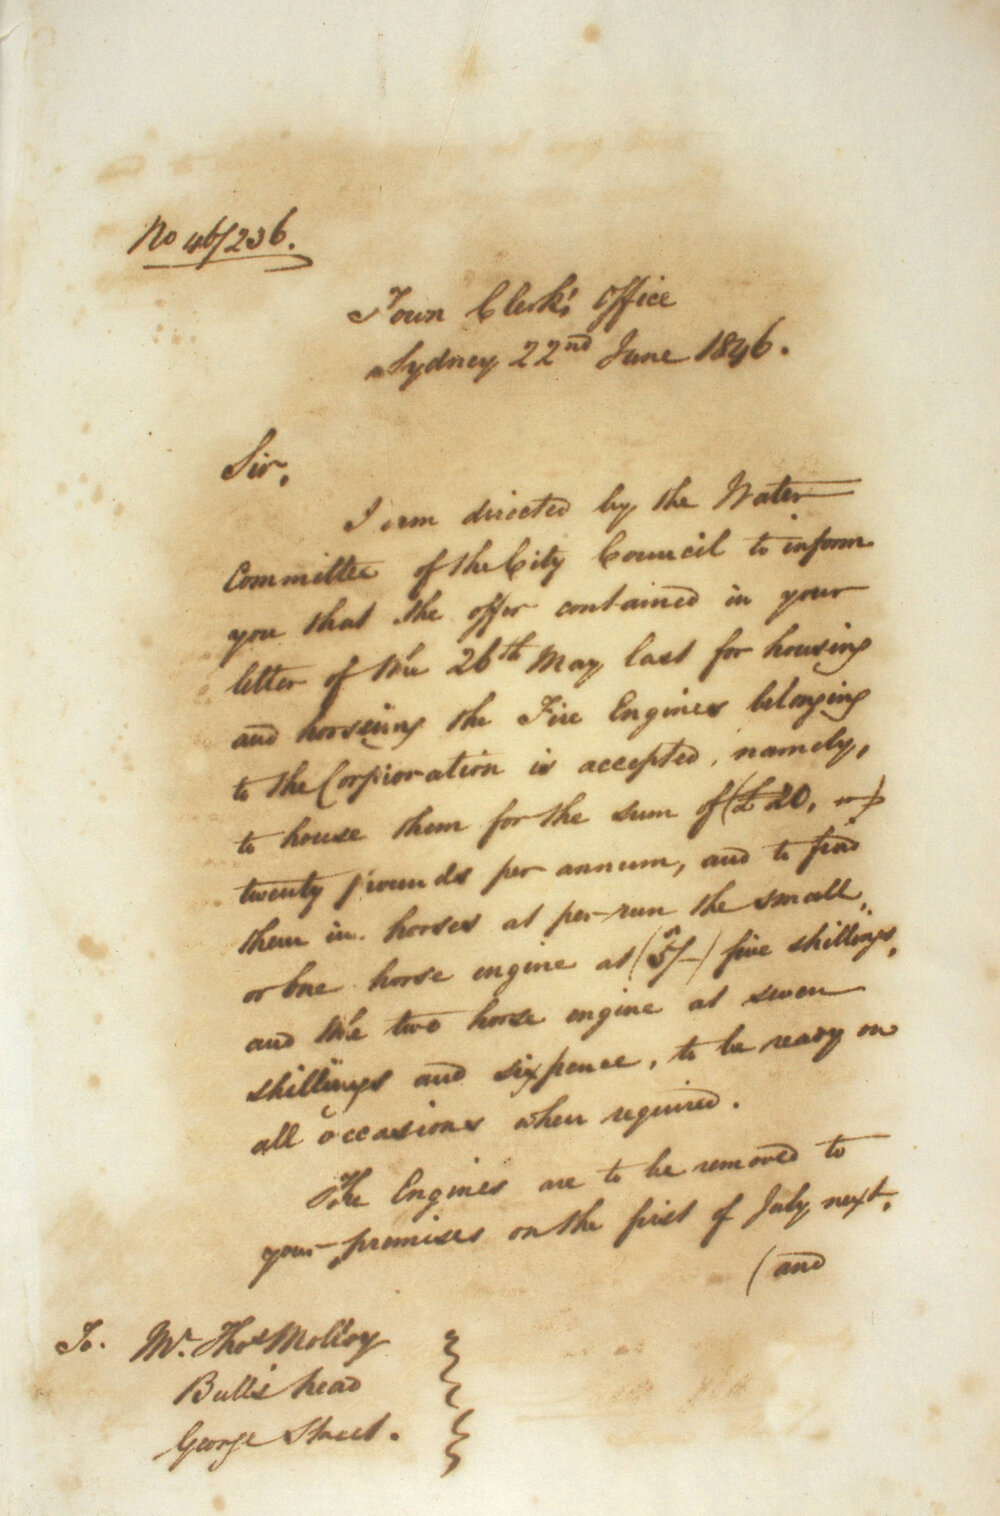 No 46/236.
Town Clerk's Office
Sydney 22nd June 1846.
Sir,
I am directed by the Water
Committee of the City Council to inform
you that the offer contained in your
letter of the 26th May last for housing
and horsing the Fire Engines belonging
to the Corporation is accepted, namely,
to house them for the sum of (£20,
twenty pounds per annum, and to find
them in horses at per run the small
or one horse engine at (5/-) five shillings,
and the two horse engine at seven
shillings and sixpence, to be ready on
all occasions when required.
The Engines are to be removed to
your premises on the first of July next,
(and
To. Mr. Thos Molloy
Bull's head
George Street.